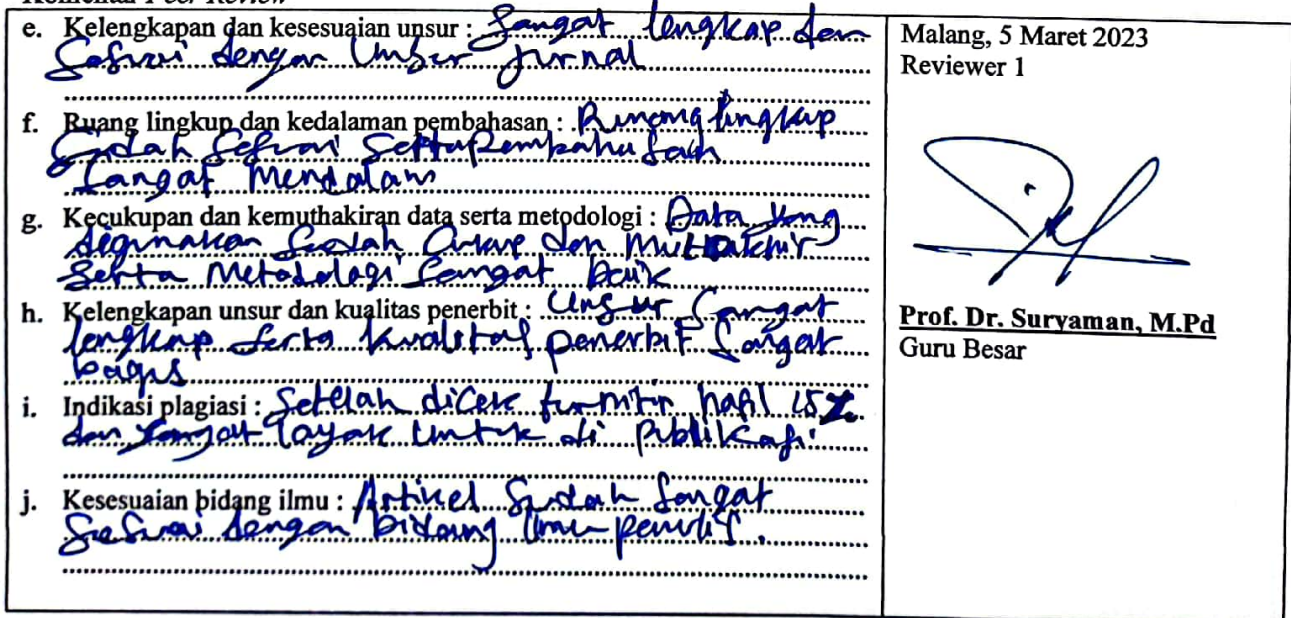 Komentar Peer Review
e. Kelengkapan dan kesesuaian unsur : Sangat lengkap dan
Sesuai dengan Unsur jurnal
f. Ruang lingkup dan kedalaman pembahasan : Ruang lingkup
Sudah Sesuai Serta Pembahasan
Sangat Mendalam
g. Kecukupan dan kemuthakiran data serta metodologi : Data yang
digunakan Sudah Cukup dan Mutakhir
Serta Metodologi Sangat baik
h. Kelengkapan unsur dan kualitas penerbit : Unsur Sangat
lengkap Serta kualitas penerbit Sangat
bagus
i. Indikasi plagiasi : Setelah dicek turnitin hasil 15%
dan Sangat layak Untuk di Publikasi
j. Kesesuaian bidang ilmu : Artikel Sudah Sangat
Sesuai dengan bidang ilmu penulis.
Malang, 5 Maret 2023
Reviewer 1
Prof. Dr. Suryaman, M.Pd
Guru Besar